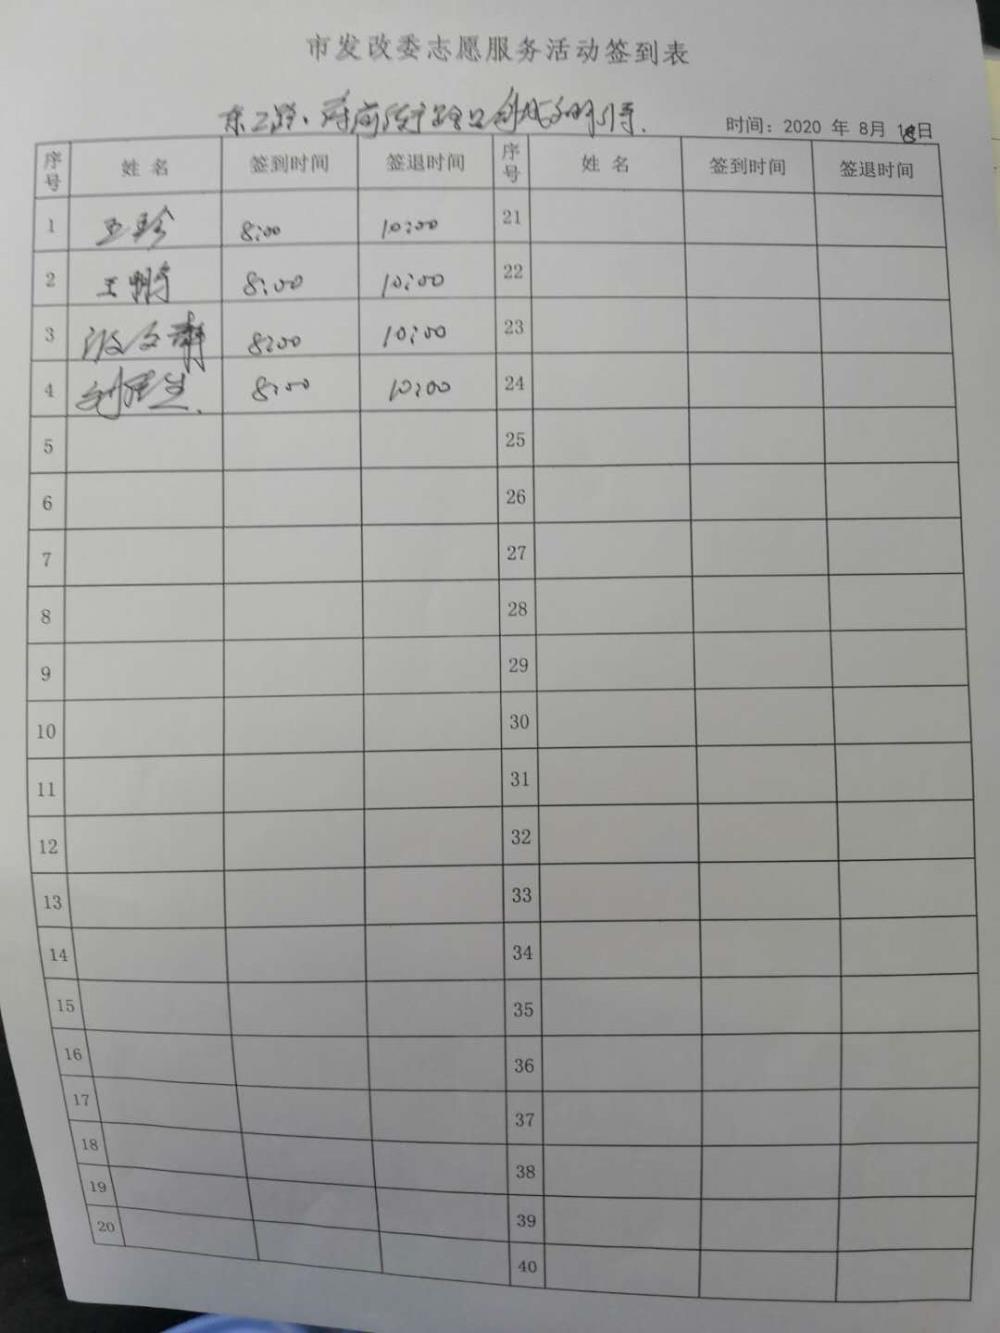 市发改委志愿服务活动签到表
东二路、府前街路口
时间：2020 年 8月 18日
序号 姓 名 签到时间 签退时间 序号 姓 名 签到时间 签退时间
1 王珍 8:00 10:00 21
2 王 8:00 10:00 22
3 文静 8:00 10:00 23
4 刘 8:00 10:00 24
5 25
6 26
7 27
8 28
9 29
10 30
11 31
12 32
13 33
14 34
15 35
16 36
17 37
18 38
19 39
20 40